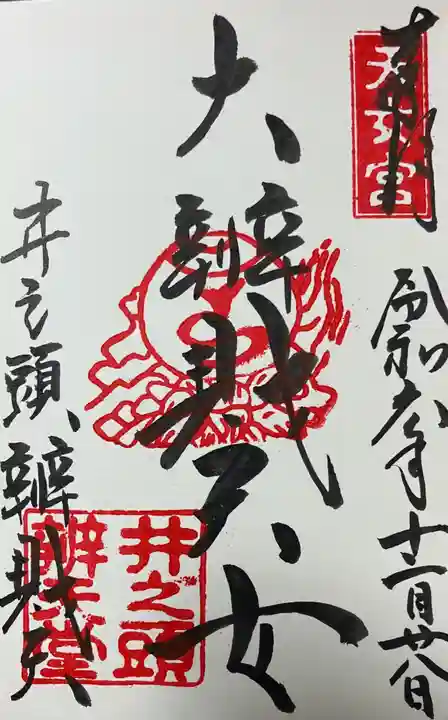 奉拝
天龍宮
令和六年十二月廿八日
大辨財天女
井之頭辨財天
井之頭
辨天堂